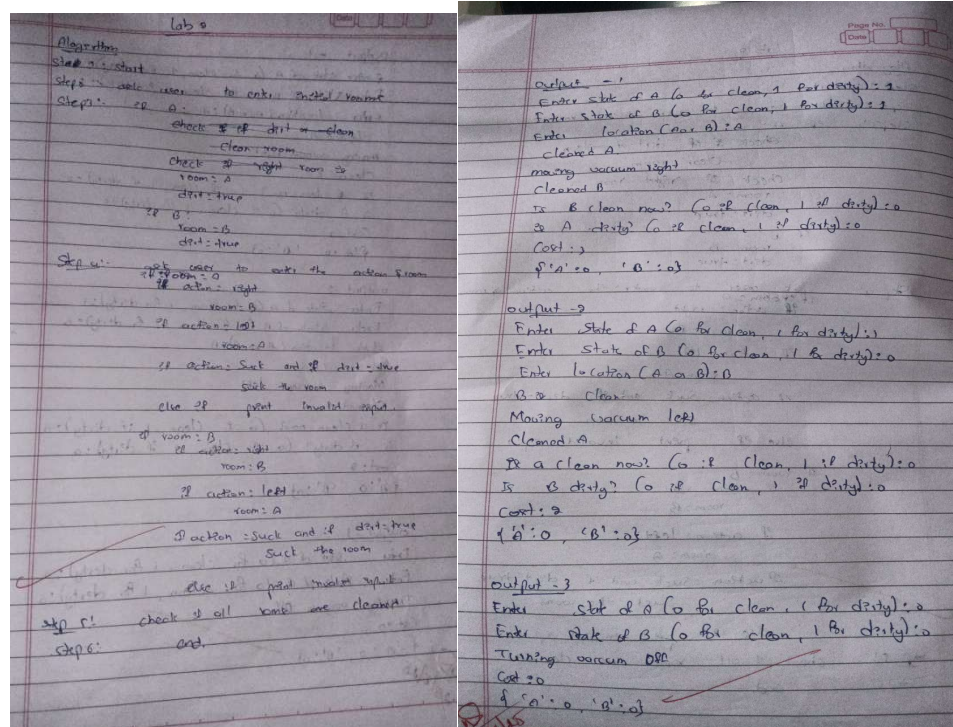 Lab 2
Date
Algorithm
Step 1: start
Step 2: ask user to enter initial rooms
Step 3: if A:
check if dirt clean
clean: room
check if right room is
room: A
dirt: true
if B:
room = B
dirt = true
Step 4: ask user to enter the action room
if room = A
if action: right
room = B
if action = left
room = A
if action: Suck and if dirt = true
suck the room
else if print invalid input.
if room: B
if action: right
room: B
if action: left
room: A
If action: Suck and if dirt = true
Suck the room
else if print invalid input
step 5: check if all rooms are cleaned
step 6: end.
Page No.
Date
output - 1
Enter state of A (0 for clean, 1 for dirty): 1
Enter state of B (0 for clean, 1 for dirty): 1
Enter location (A or B): A
cleaned A
moving vacuum right
Cleaned B
Is B clean now? (0 if clean, 1 if dirty): 0
Is A dirty? (0 if clean, 1 if dirty): 0
Cost:
{'A': 0, 'B': 0}
output - 2
Enter state of A (0 for clean, 1 for dirty): 1
Enter state of B (0 for clean, 1 for dirty): 0
Enter location (A or B): B
B is clean
Moving vacuum left
Cleaned A
Is A clean now? (0 if clean, 1 if dirty): 0
Is B dirty? (0 if clean, 1 if dirty): 0
Cost: 2
{'A': 0, 'B': 0}
output - 3
Enter state of A (0 for clean, 1 for dirty): 0
Enter state of B (0 for clean, 1 for dirty): 0
Turning vacuum off
Cost: 0
{'A': 0, 'B': 0}